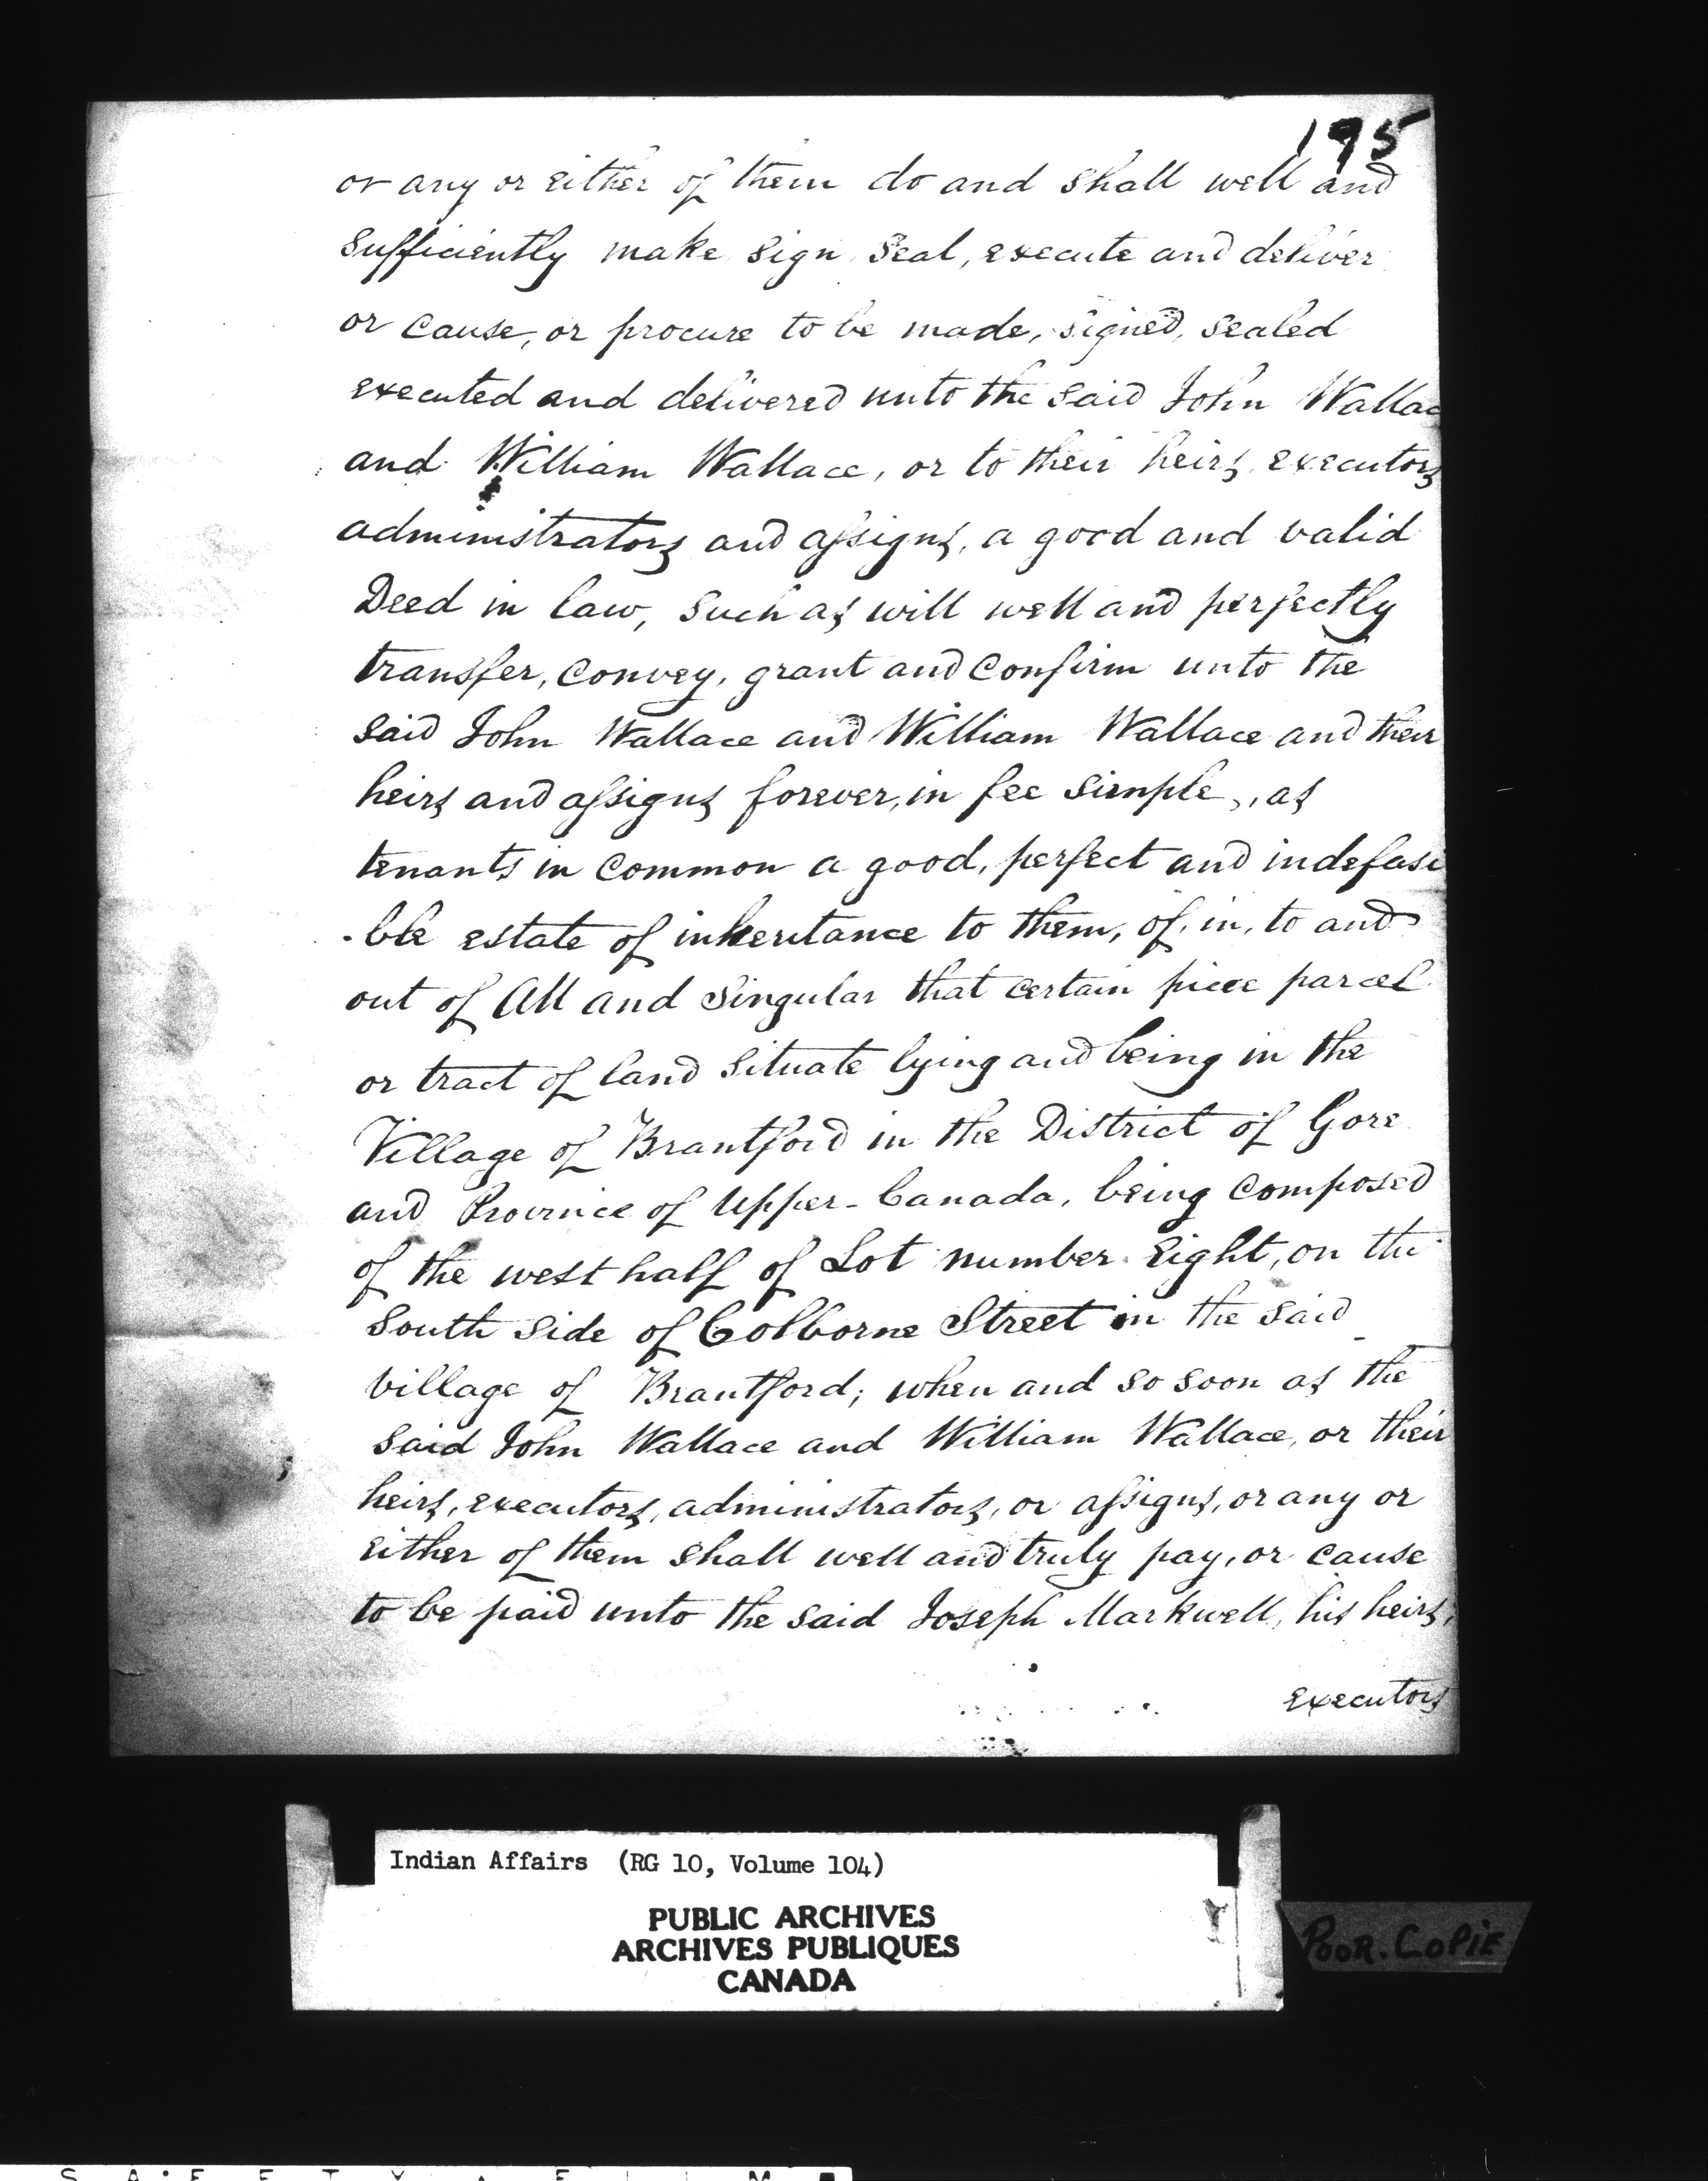 195
or any or either of them do and shall well and
sufficiently make sign seal, execute and deliver
or cause, or procure to be made, signed, sealed
executed and delivered unto the said John Wallac
and William Wallace, or to their heirs, executors
administrators and assigns, a good and valid
Deed in law, such as will well and perfectly
transfer, convey, grant and confirm unto the
said John Wallace and William Wallace and their
heirs and assigns forever, in fee simple, as
tenants in common a good, perfect and indefasi
-ble estate of inheritance to them, of, in, to and
out of All and Singular that certain piece parcel
or tract of land situate lying and being in the
Village of Brantford in the District of Gore
and Province of Upper-Canada, being composed
of the west half of Lot number Eight, on the
South side of Colborne Street in the said
village of Brantford; when and so soon as the
said John Wallace and William Wallace, or their
heirs, executors, administrators, or assigns, or any or
either of them shall well and truly pay, or cause
to be paid unto the said Joseph Markwell, his heirs,
executors
Indian Affairs (RG 10, Volume 104)
PUBLIC ARCHIVES
ARCHIVES PUBLIQUES
CANADA
POOR.COPIE